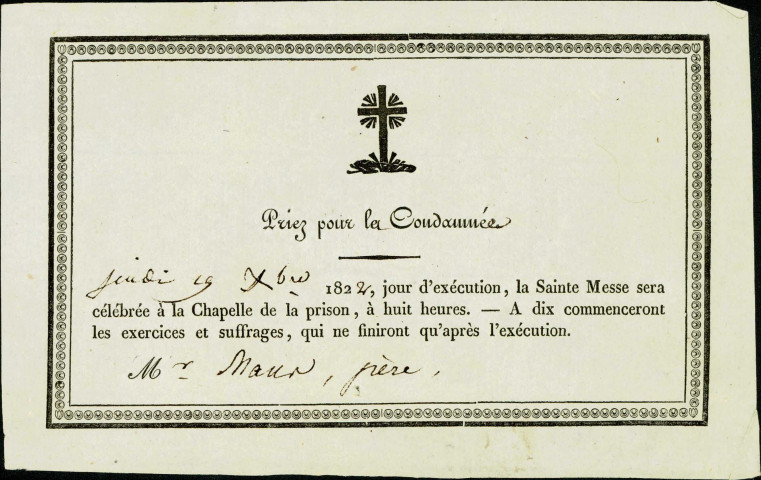 Priez pour la Condamnée
jeudi 19 Xbre 1822, jour d'exécution, la Sainte Messe sera
célébrée à la Chapelle de la prison, à huit heures. — A dix commenceront
les exercices et suffrages, qui ne finiront qu'après l'exécution.
Mr , père,